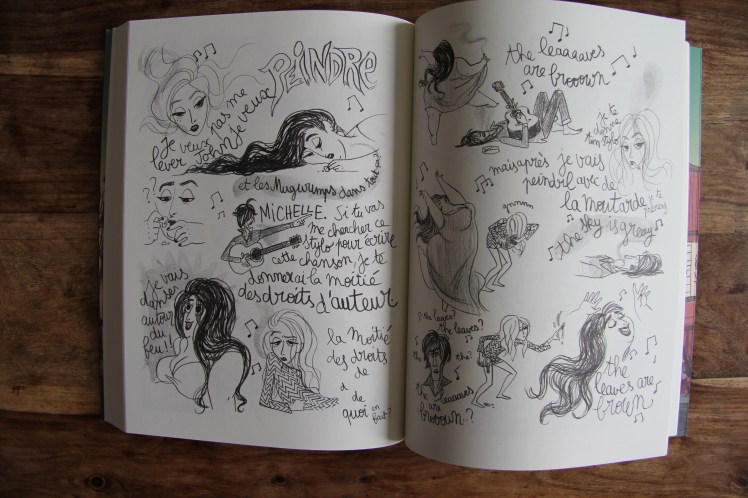 PEINDRE
Je veux pas me
lever John je veux
et les Mugwumps dans tout ça?
??
MICHELLE. Si tu vas
me chercher ce
stylo pour écrire
cette chanson, je te
donnerai la moitié
des droits d'auteur
je vais
danser
autour
du
feu!!
la moitié
des droits
de
d
de
quoi en
fait?
the leaaaaves
are brooown
Je te
donne
ton stylo
mais après je vais
peindre avec de
la moutarde
gnnnnn
the sky is greay
the leaves?
the leaves?
the
the?
the leaaaaves
are
brooown?
the
leaves are
brown